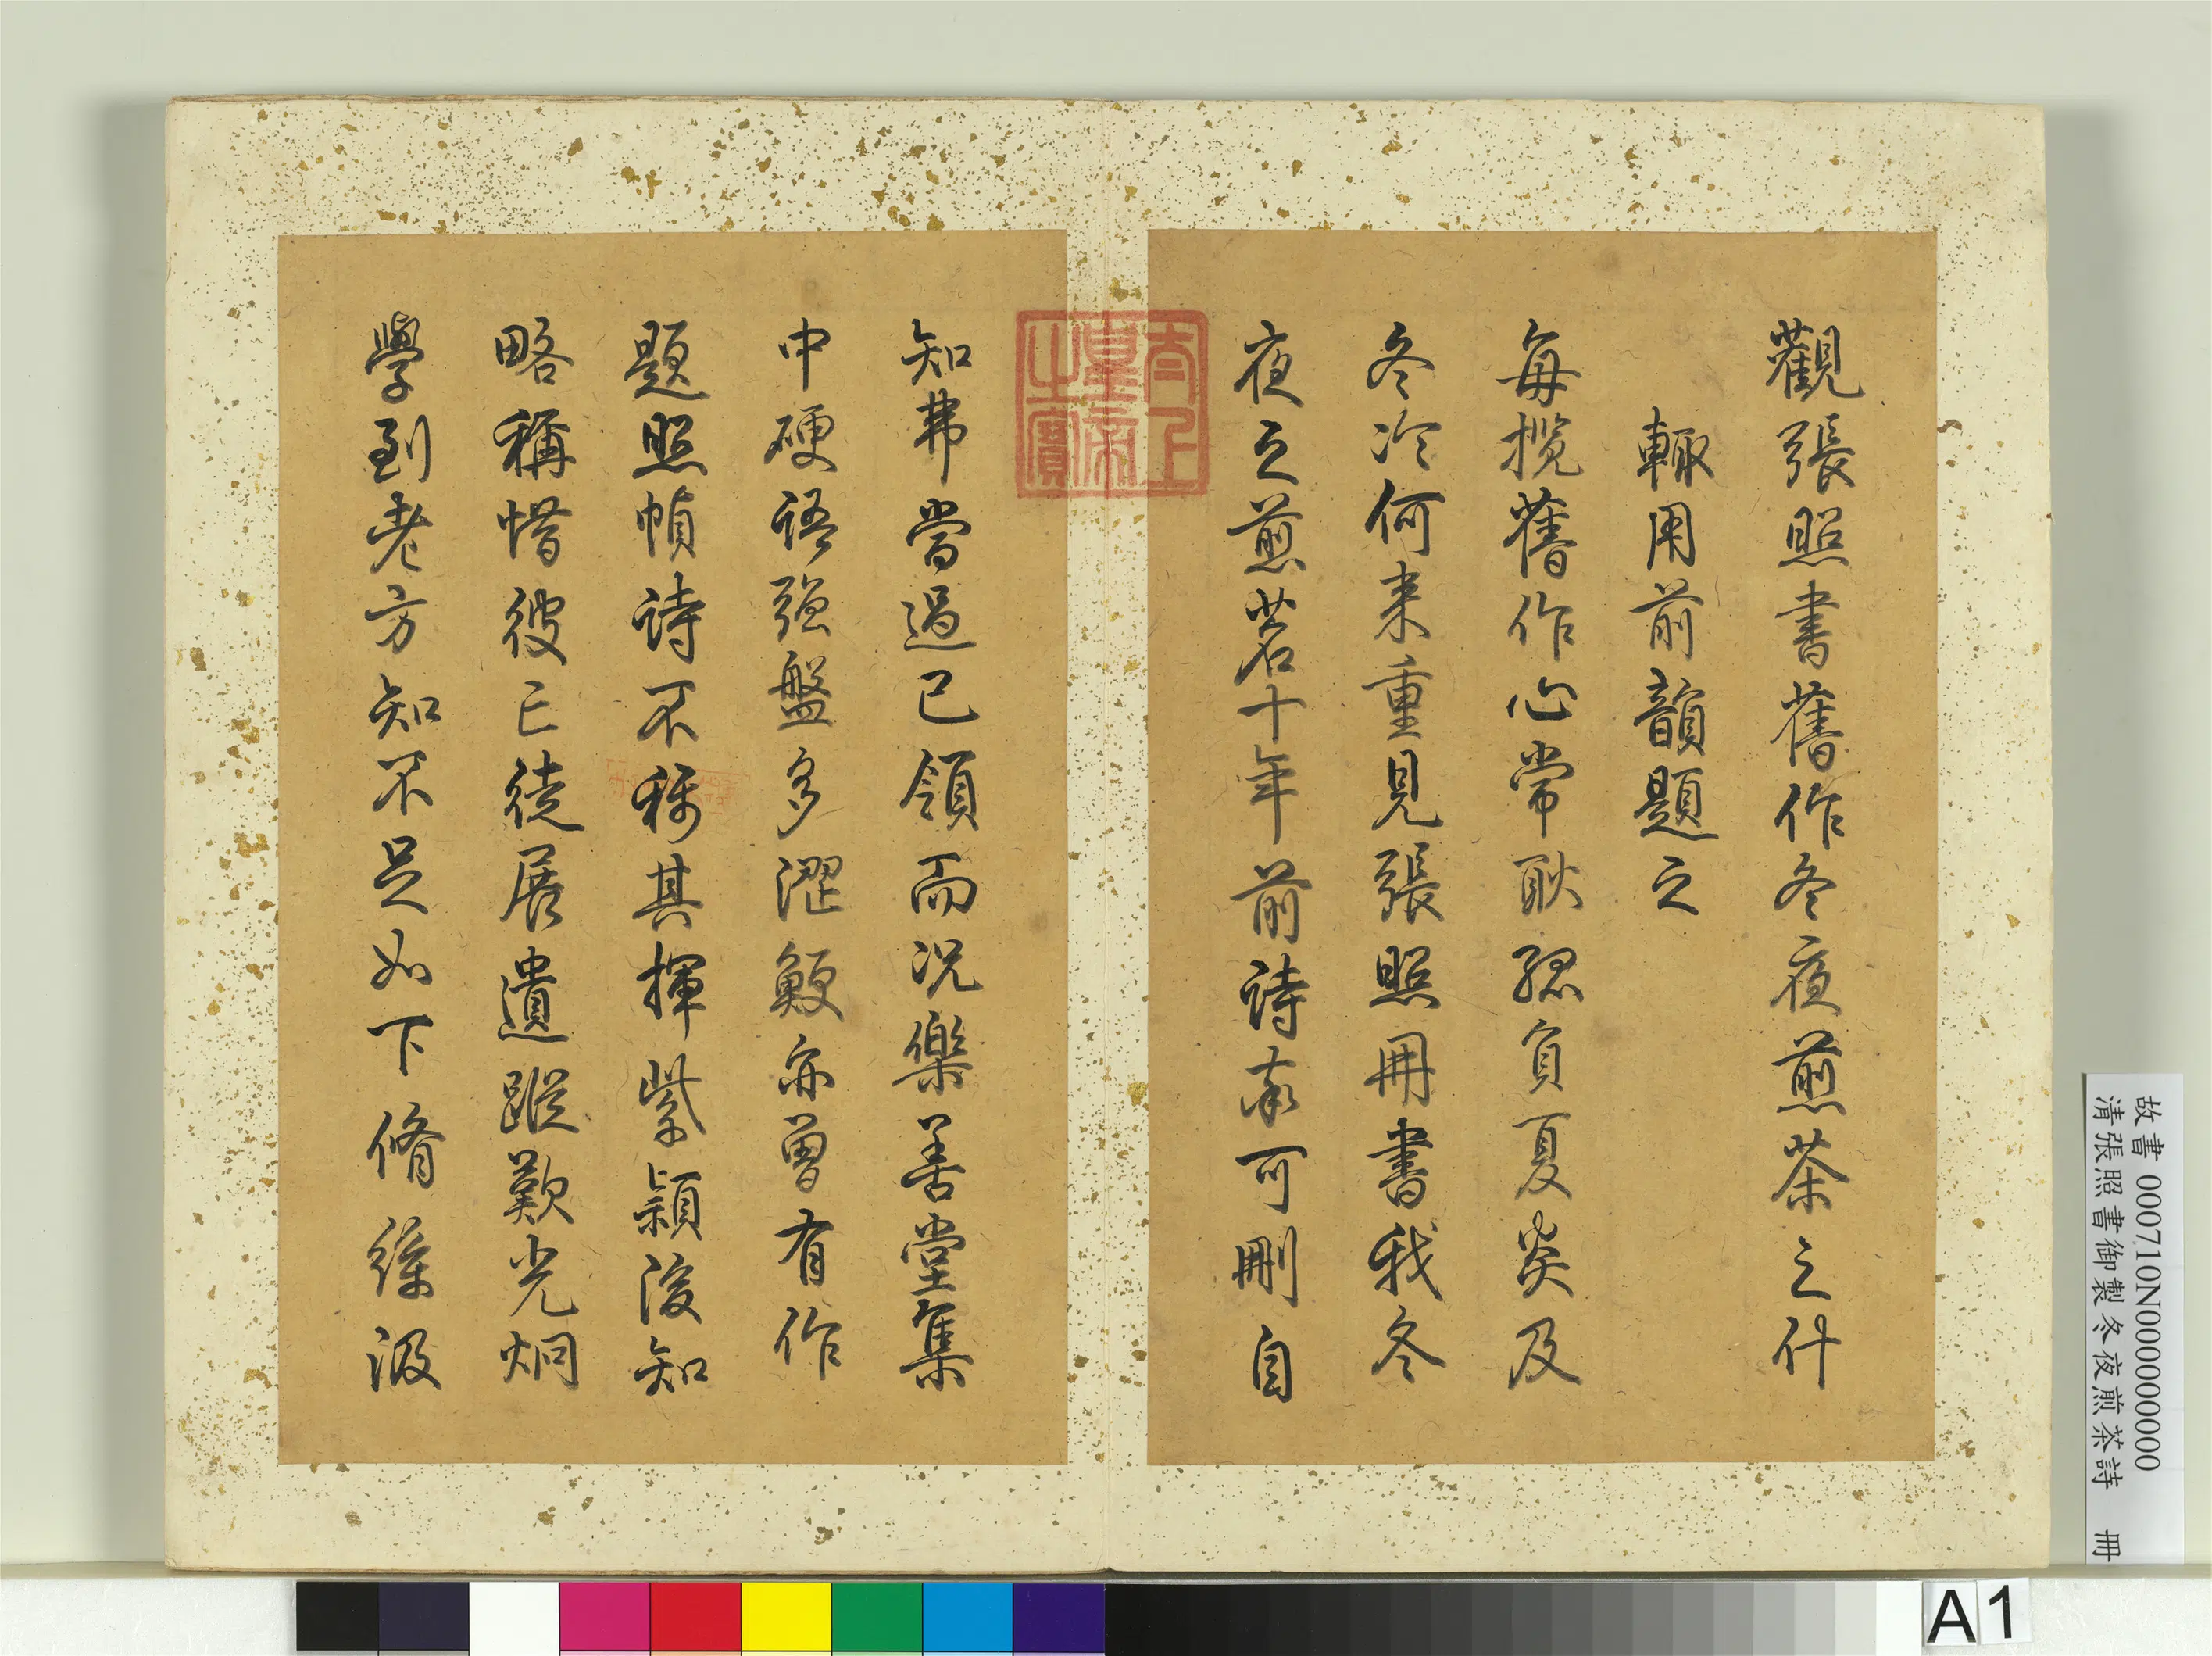 觀張照書舊作冬夜煎茶之什
輙用前韻題之
每攬舊作心常耿孤負夏炎及
冬冷何來重見張照冊書我冬
夜之煎茗十年前詩率可刪自
知弗當過已領而況樂善堂集
中硬語強盤多澀鯁亦曾有作
題照幀詩不稱其揮紫穎後知
略稱惜彼亡徒展遺蹤歎光炯
學到老方知不足如下脩綆汲
太上皇帝之寶
故書 000710N000000000
清張照書御製冬夜煎茶詩 冊
A1